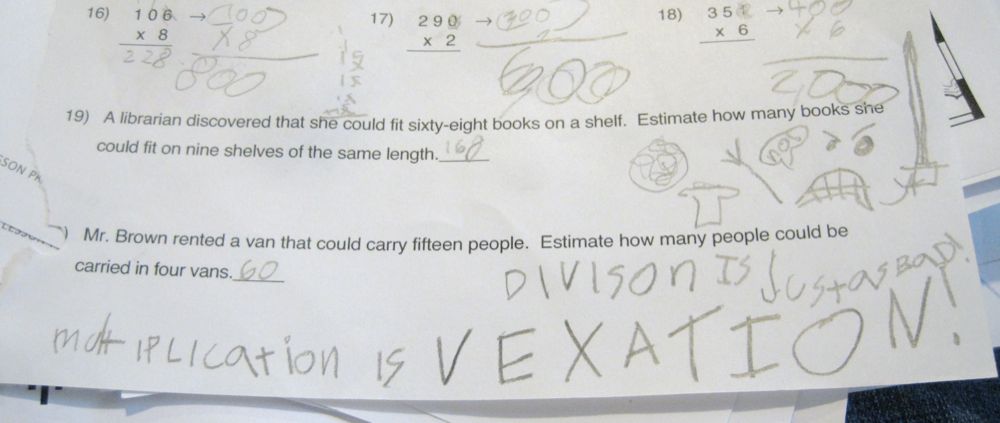 16) 106 → 100
x 8 x 8
228 800
17) 290 → 300
x 2 2
600
18) 351 → 400
x 6 x 6
2,000
19) A librarian discovered that she could fit sixty-eight books on a shelf. Estimate how many books she
could fit on nine shelves of the same length. 168
SSON PR
) Mr. Brown rented a van that could carry fifteen people. Estimate how many people could be
carried in four vans. 60
DIVISON IS JUST AS BAD!
multIPLICation is VEXATION!